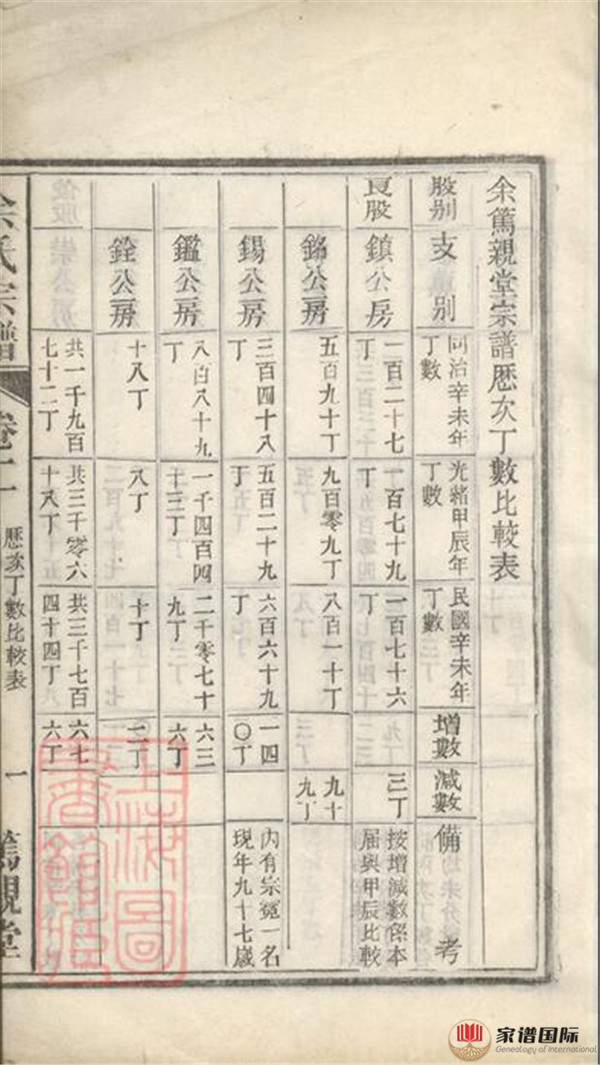 余篤親堂宗譜厯次丁數比較表
股别 支别 同治辛未年丁數 光緒甲辰年丁數 民國辛未年丁數 增數 減數 備考
良股 鎮公房 一百二十七丁 一百七十九丁 一百七十六丁 三丁 按增減數係本屆與甲辰比較
銘公房 五百九十丁 九百零九丁 八百一十丁 九十九丁
錫公房 三百四十八丁 五百二十九丁 六百六十九丁 一四〇丁 內有宗冕一名現年九十七歲
鑑公房 八百八十九丁 一千四百四十三丁 二千零七十九丁 六三六丁
銓公房 十八丁 八丁 十丁 二丁
共一千九百七十二丁 共三千零六十八丁 共三千七百四十四丁 六七六丁
余氏宗譜 卷二 厯次丁數比較表 一 篤親堂
家谱国际
Genealogy of International